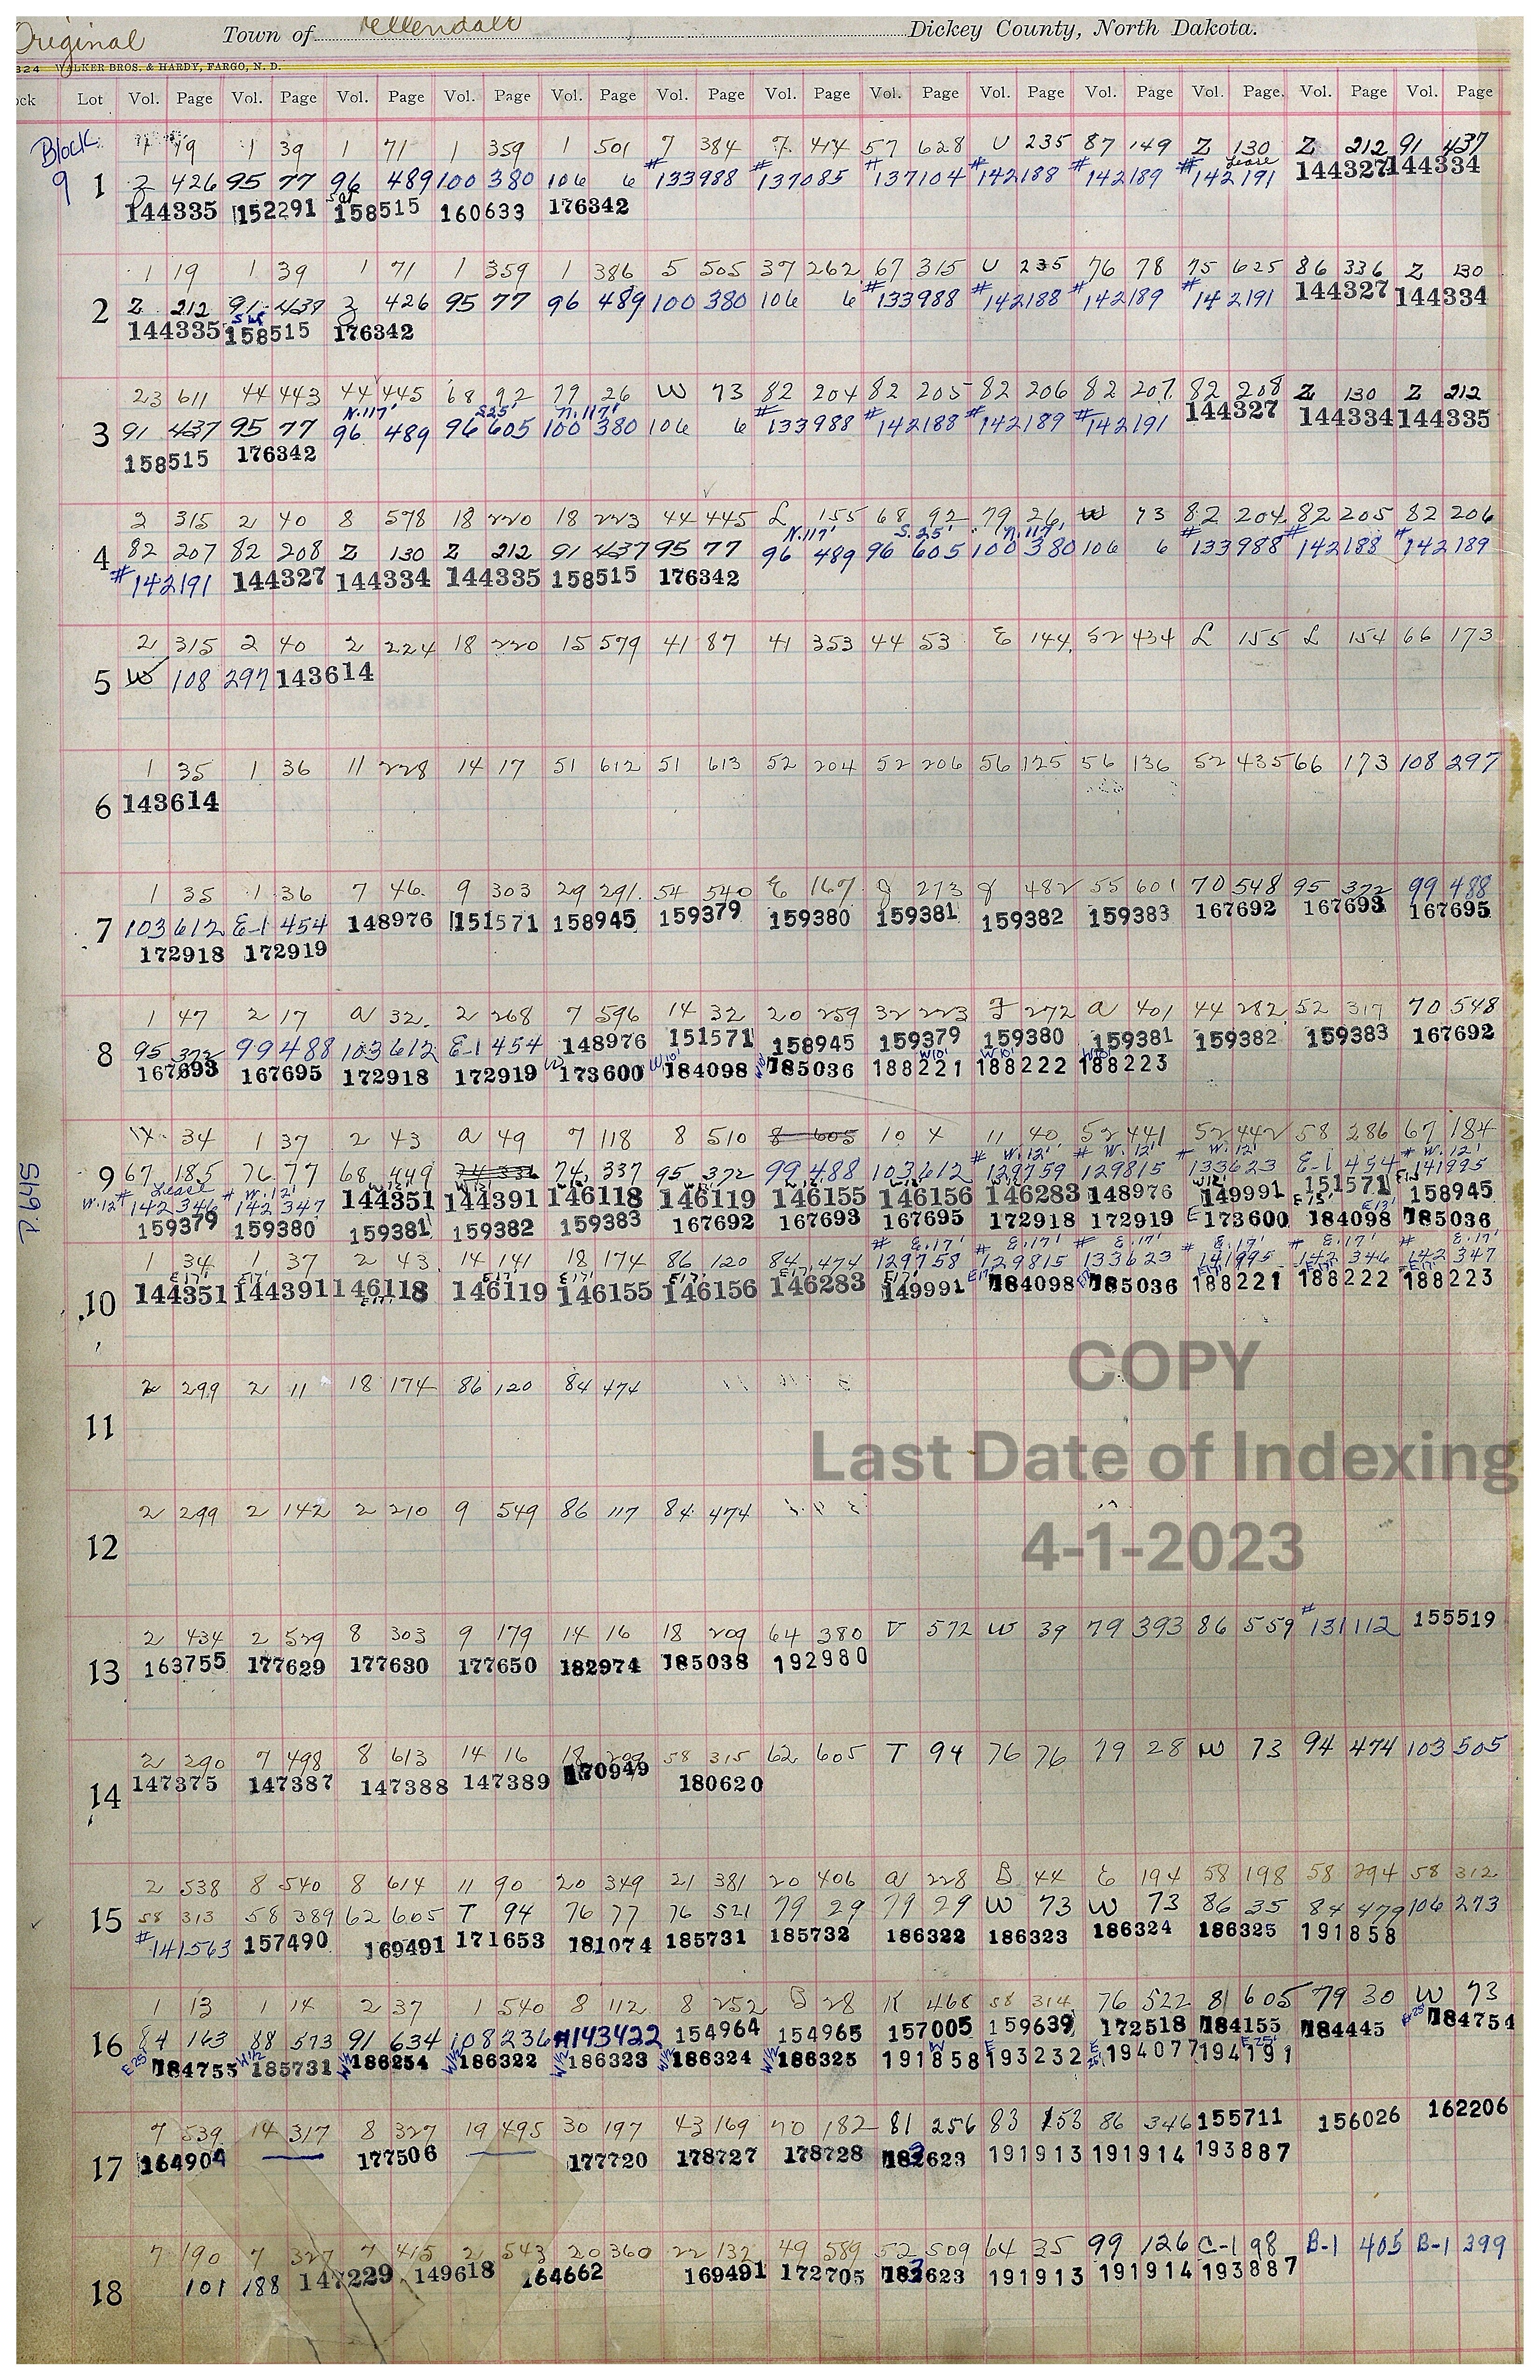 Original Town of Ellendale Dickey County, North Dakota.
324 WALKER BROS. & HARDY, FARGO, N. D.
ock Lot Vol. Page Vol. Page Vol. Page Vol. Page Vol. Page Vol. Page Vol. Page Vol. Page Vol. Page Vol. Page Vol. Page Vol. Page Vol. Page
Block 1 19 1 39 1 71 1 359 1 501 7 384 7 414 57 628 U 235 87 149 Z 130 Z 212 91 437
9 1 Z 426 95 77 96 489 100 380 106 6 #133988 #137085 #137104 #142188 #142189 #142191 Lease 144327 144334
144335 152291 158515 160633 176342
1 19 1 39 1 71 1 359 1 386 5 505 37 262 67 315 U 235 76 78 75 625 86 336 Z 130
2 Z 212 91 437 Z 426 95 77 96 489 100 380 106 6 #133988 #142188 #142189 #142191 144327 144334
144335 158515 176342
23 611 44 443 44 445 68 92 79 26 W 73 82 204 82 205 82 206 82 207 82 208 Z 130 Z 212
N.117' S25' N.117'
3 91 437 95 77 96 489 96 605 100 380 106 6 #133988 #142188 #142189 #142191 144327 144334 144335
158515 176342
2 315 2 40 8 578 18 220 18 223 44 445 L 155 68 92 79 26 W 73 82 204 82 205 82 206
N.117' S.25' N.117'
4 82 207 82 208 Z 130 Z 212 91 437 95 77 96 489 96 605 100 380 106 6 #133988 #142188 #142189
#142191 144327 144334 144335 158515 176342
2 315 2 40 2 224 18 220 15 579 41 87 41 353 44 53 E 144 52 434 L 155 L 154 66 173
5 W 108 297 143614
1 35 1 36 11 228 14 17 51 612 51 613 52 204 52 206 56 125 56 136 52 435 66 173 108 297
6 143614
1 35 1 36 7 46 9 303 29 291 54 540 E 167 J 273 J 482 55 601 70 548 95 372 99 488
7 103 612 E-1 454 148976 151571 158945 159379 159380 159381 159382 159383 167692 167693 167695
172918 172919
1 47 2 17 a 32 2 268 7 596 14 32 20 259 32 223 F 272 a 401 44 282 52 317 70 548
8 95 372 99 488 103 612 E-1 454 148976 151571 158945 159379 159380 159381 159382 159383 167692
167693 167695 172918 172919 173600 W10' 184098 W10' 185036 W10' 188221 W10' 188222 W10' 188223
34 1 37 2 43 a 49 7 118 8 510 8 605 10 4 11 40 52 441 52 442 58 286 67 184
# W.12' # W.12' # W.12' # W.12'
9 67 185 76 77 68 449 74 336 74 337 95 372 99 488 103 612 129759 129815 133623 E-1 454 141995
W.12' # Lease 142346 # W.12' 142347 144351 144391 146118 146119 146155 146156 146283 148976 149991 151571 158945
159379 159380 159381 159382 159383 167692 167693 167695 172918 172919 E 173600 184098 185036
1 34 1 37 2 43 14 141 18 174 86 120 84 474 # E.17' 129758 # E.17' 129815 # E.17' 133623 # E.17' 141995 # E.17' 142346 # E.17' 142347
10 144351 144391 146118 146119 146155 146156 146283 149991 184098 185036 188221 188222 188223
2 299 2 11 18 174 86 120 84 474
COPY
11
Last Date of Indexing
2 299 2 142 2 210 9 549 86 117 84 474
12
4-1-2023
2 434 2 529 8 303 9 179 14 16 18 209 64 380 V 572 W 39 79 393 86 559 #131112 155519
13 163755 177629 177630 177650 182974 185038 192980
2 290 7 498 8 613 14 16 18 209 58 315 62 605 T 94 76 76 79 28 W 73 94 474 103 505
14 147375 147387 147388 147389 170949 180620
2 538 8 540 8 614 11 90 20 349 21 381 20 406 a 228 B 44 E 194 58 198 58 294 58 312
15 58 313 58 389 62 605 T 94 76 77 76 521 79 29 79 29 W 73 W 73 86 35 84 479 106 273
#141563 157490 169491 171653 181074 185731 185732 186322 186323 186324 186325 191858
1 13 1 14 2 37 1 540 8 112 8 252 B 28 K 468 58 314 76 522 81 605 79 30 W 73
16 84 163 88 573 91 634 108 236 #143422 154964 154965 157005 159639 172518 184155 184445 E25' 184754
E25' 184755 W1/2 185731 W1/2 186254 W1/2 186322 W1/2 186323 W1/2 186324 W1/2 186325 191858 193232 194077 194191
7 539 14 317 8 327 19 495 30 197 43 169 70 182 81 256 83 153 86 346 155711 156026 162206
17 164904 177506 177720 178727 178728 182623 191913 191914 193887
7 190 7 327 7 415 2 543 20 360 22 132 49 589 52 509 64 35 99 126 C-1 98 B-1 405 B-1 399
18 101 188 147229 149618 164662 169491 172705 182623 191913 191914 193887
P. 645